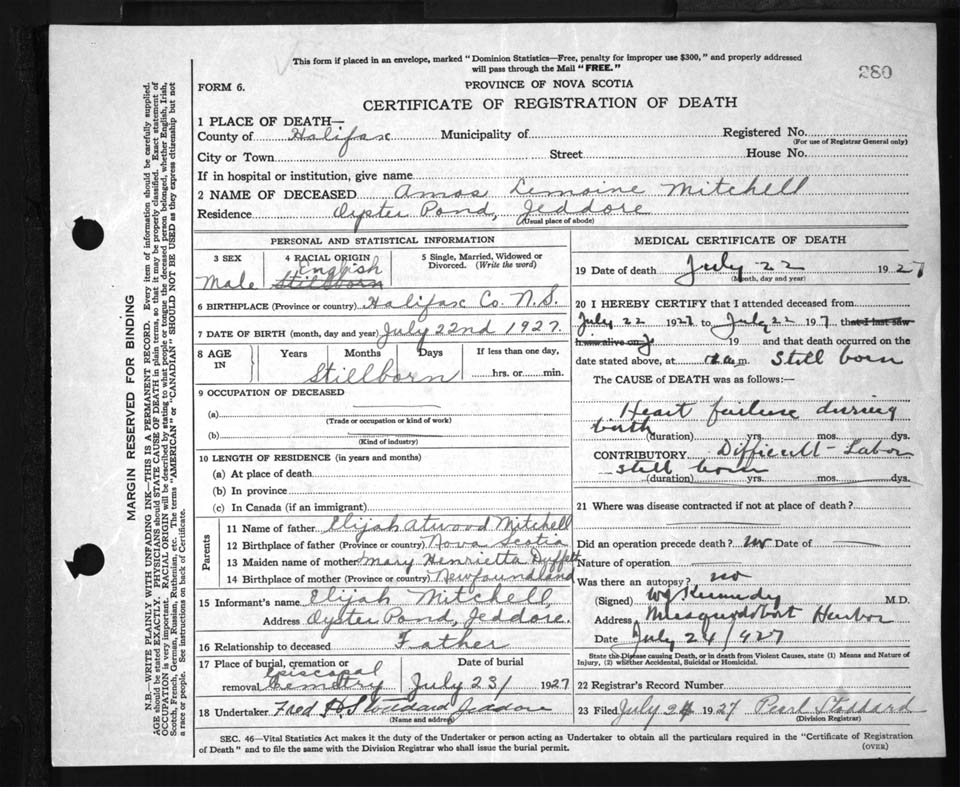 This form if placed in an envelope, marked "Dominion Statistics—Free, penalty for improper use $300," and properly addressed
will pass through the Mail "FREE."
280
FORM 6.
PROVINCE OF NOVA SCOTIA
CERTIFICATE OF REGISTRATION OF DEATH
1 PLACE OF DEATH—
County of Halifax Municipality of Registered No.
(For use of Registrar General only)
City or Town Street House No.
If in hospital or institution, give name
2 NAME OF DECEASED Amos Lemoine Mitchell
Residence Oyster Pond, Jeddore
(Usual place of abode)
PERSONAL AND STATISTICAL INFORMATION
3 SEX 4 RACIAL ORIGIN 5 Single, Married, Widowed or
Divorced. (Write the word)
English
Male Stillborn
6 BIRTHPLACE (Province or country) Halifax Co. N.S.
7 DATE OF BIRTH (month, day and year) July 22nd 1927.
8 AGE IN Years Months Days If less than one day,
Stillborn hrs. or min.
9 OCCUPATION OF DECEASED
(a)
(Trade or occupation or kind of work)
(b)
(Kind of industry)
10 LENGTH OF RESIDENCE (in years and months)
(a) At place of death
(b) In province
(c) In Canada (if an immigrant)
Parents
11 Name of father Elijah Atwood Mitchell
12 Birthplace of father (Province or country) Nova Scotia
13 Maiden name of mother Mary Henrietta Duffett
14 Birthplace of mother (Province or country) Newfoundland
15 Informant's name Elijah Mitchell,
Address Oyster Pond, Jeddore.
16 Relationship to deceased Father
17 Place of burial, cremation or Date of burial
Episcopal
removal Cemetry July 23/ 1927
18 Undertaker Fred H. Stoddard Jeddore
(Name and address)
MEDICAL CERTIFICATE OF DEATH
19 Date of death July 22 1927
(Month, day and year)
20 I HEREBY CERTIFY that I attended deceased from
July 22 1927 to July 22 1927 that I last saw
h was alive on 19 and that death occurred on the
date stated above, at a.m. Still born
The CAUSE of DEATH was as follows:—
Heart failure during
birth
(duration) yrs. mos. dys.
CONTRIBUTORY Difficult-Labor
still born
(duration) yrs. mos. dys.
21 Where was disease contracted if not at place of death?
Did an operation precede death? no Date of
Nature of operation
Was there an autopsy? no
(Signed) W J Kennedy M.D.
Address Musquodoboit Harbor
Date July 24 1927
State the Disease causing Death, or in death from Violent Causes, state (1) Means and Nature of
Injury, (2) whether Accidental, Suicidal or Homicidal.
22 Registrar's Record Number
23 Filed July 24 1927 Pearl Stoddard
(Division Registrar)
SEC. 46—Vital Statistics Act makes it the duty of the Undertaker or person acting as Undertaker to obtain all the particulars required in the "Certificate of Registration
of Death" and to file the same with the Division Registrar who shall issue the burial permit.
(OVER)
MARGIN RESERVED FOR BINDING
N.B.—WRITE PLAINLY WITH UNFADING INK—THIS IS A PERMANENT RECORD. Every item of information should be carefully supplied.
AGE should be stated EXACTLY. PHYSICIANS should STATE CAUSE OF DEATH in plain terms, so that it may be properly classified. Exact statement of
OCCUPATION is very important. RACIAL ORIGIN will be described by stating to what people or tongue the deceased person belonged, whether English, Irish,
Scotch, French, German, Russian, Ruthenian, etc. The terms "AMERICAN" or "CANADIAN" SHOULD NOT BE USED as they express citizenship but not
a race or people. See instructions on back of Certificate.